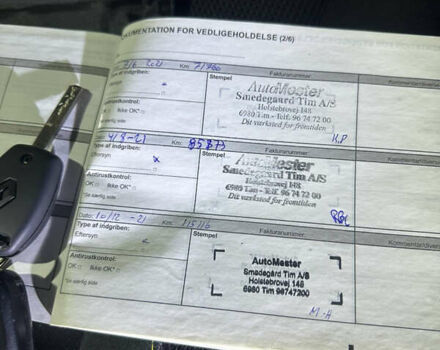 DOKUMENTATION FOR VEDLIGEHOLDELSE (2/6)
Km:
Type af indgriben:
Stempel
Fakturanummer:
AutoMester
Smedegaard Tim A/S
Holstebrovej 148
6980 Tim - Telf. 96 74 72 00
Dit værksted for fremtiden
Antirustkontrol:
OK□ Ikke OK*□
*Se særlig side
H.P
4/8-21 Km: 85873
Type af indgriben:
Eftersyn: x
Stempel
Fakturanummer:
AutoMester
Smedegaard Tim A/S
Holstebrovej 148
6980 Tim - Telf. 96 74 72 00
Dit værksted for fremtiden
Antirustkontrol:
OK□ Ikke OK*□
*Se særlig side
Dato: 10/12 -21 Km:
Type af indgriben:
Eftersyn:
Stempel
Fakturanummer:
AutoMester
Smedegård Tim A/S
Holstebrovej 148
6980 Tim 96747200
Antirustkontrol:
OK□ Ikke OK*□
*Se særlig side
M-A